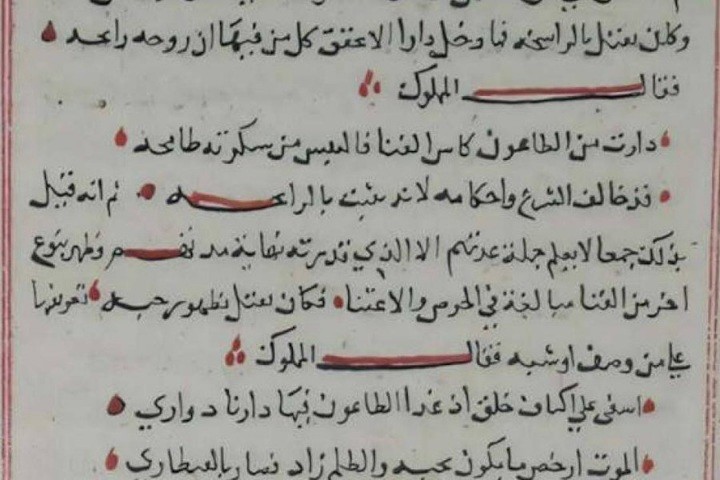 وكان يقتل بالرائحة فما دخل دارا الا عقق كل من فيها ان روحه رائحه
فقال المملوك
دارت من الطاعون كاس الفنا فالنفس من سكرته طافحه
قد خالف الشرع واحكامه لانه يثبت بالرائحه ثم انه قتل
بذلك جمعا لا يعلم جملة عدتهم الا الذي قدرته نهاية مدتهم وظهر بنوع
اخر من الفنا مبالغة في الحرص والاعتنا فكان يقتل بظهور حبه تعرفها
على من وصف او شبه فقال المملوك
اسفي على اكناف خلق اذ غدا الطاعون فيها دارنا دواري
الموت ارخص ما يكون بحبه والظلم زاد فصار بالقنطاري